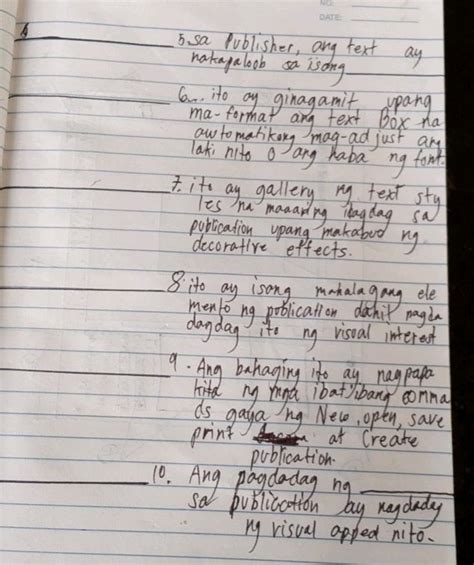 NO.
DATE:
5. sa Publisher, ang text ay
nakapaloob sa isang
6. ito ay ginagamit upang
ma-format ang text box na
awtomatikong mag-adjust ang
laki nito o ang haba ng font.
7. ito ay gallery ng text sty
les na maaaring idagdag sa
publication upang makabuo ng
decorative effects.
8. ito ay isang mahalagang ele
mento ng publication dahil nagda
dagdag ito ng visual interest
9. Ang bahaging ito ay nagpapa
kita ng mga ibat'ibang comma
ds gaya ng New, open, save
print at Create
publication.
10. Ang pagdadag ng
sa publication ay nagdadag
ng visual apped nito.